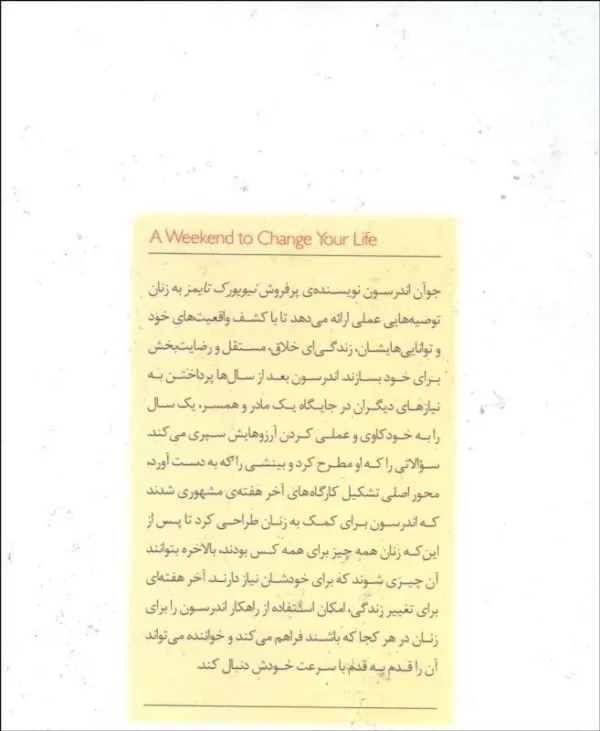 A Weekend to Change Your Life
جوآن اندرسون نویسنده‌ی پرفروش نیویورک تایمز به زنان
توصیه‌هایی عملی ارائه می‌دهد تا با کشف واقعیت‌های خود
و توانایی‌هایشان، زندگی‌ای خلاق، مستقل و رضایت‌بخش
برای خود بسازند. اندرسون بعد از سال‌ها پرداختن به
نیازهای دیگران در جایگاه یک مادر و همسر، یک سال
را به خودکاوی و عملی کردن آرزوهایش سپری می‌کند.
سؤالاتی را که او مطرح کرد و بینشی را که به دست آورد،
محور اصلی تشکیل کارگاه‌های آخر هفته‌ی مشهوری شدند
که اندرسون برای کمک به زنان طراحی کرد تا پس از
این‌که زنان همه چیز برای همه کس بودند، بالاخره بتوانند
آن چیزی شوند که برای خودشان نیاز دارند. آخر هفته‌ای
برای تغییر زندگی، امکان استفاده از راهکار اندرسون را برای
زنان در هر کجا که باشند فراهم می‌کند و خواننده می‌تواند
آن را قدم به قدم با سرعت خودش دنبال کند.